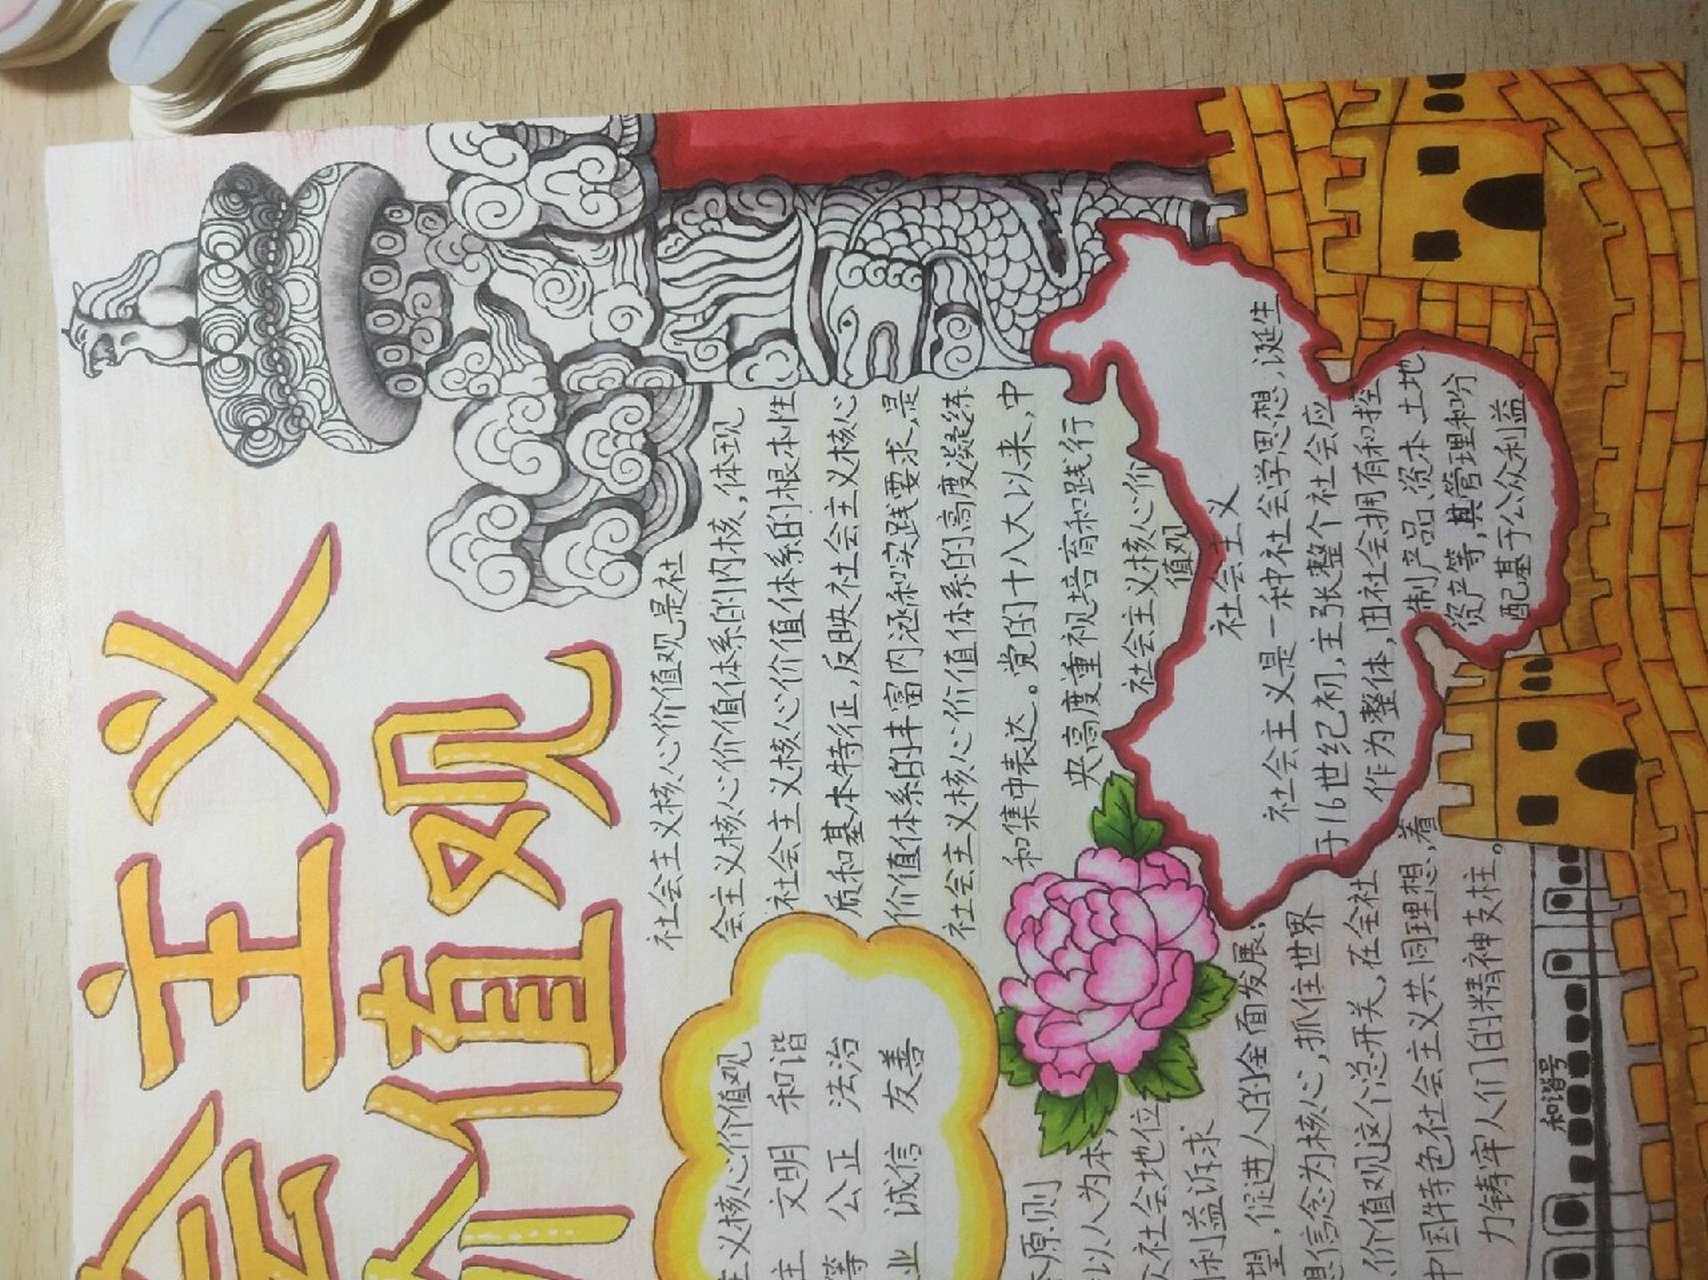 会主义
价值观
社会主义核心价值观是社
会主义核心价值体系的内核,体现
社会主义核心价值体系的根本性
质和基本特征,反映社会主义核心
价值体系的丰富内涵和实践要求,是
社会主义核心价值体系的高度凝练
和集中表达。党的十八大以来,中
央高度重视培育和践行
社会主义核心价
值观
主义核心价值观
主 文明 和谐
等 公正 法治
业 诚信 友善
社会主义
社会主义是一种社会学思想,诞生
于16世纪初,主张整个社会应
作为整体,由社会拥有和控
制产品、资本、土地
资产等,其管理和分
配基于公众利益。
本原则
以人为本,
众社会地位
利益诉求
望,促进人的全面发展;
想信念为核心,抓住世界
价值观这个总开关,在全社
中国特色社会主义共同理想,着
力铸牢人们的精神支柱。
和谐号